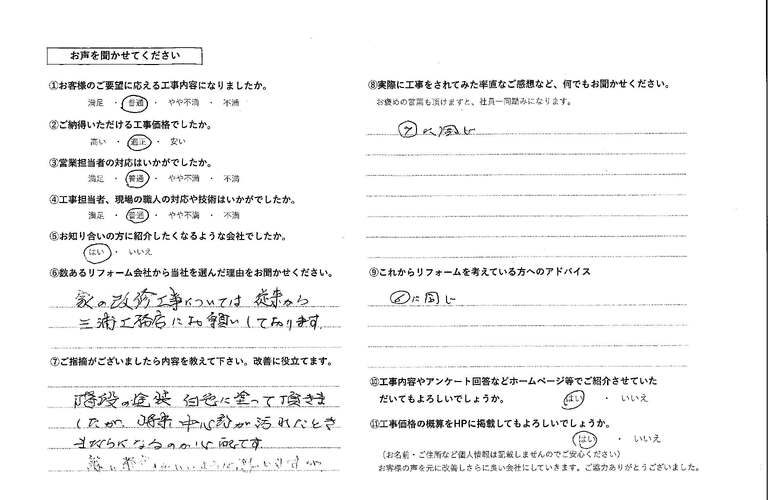 お声を聞かせてください
①お客様のご要望に応える工事内容になりましたか。
満足 ・ 普通 ・ やや不満 ・ 不満
②ご納得いただける工事価格でしたか。
高い ・ 適正 ・ 安い
③営業担当者の対応はいかがでしたか。
満足 ・ 普通 ・ やや不満 ・ 不満
④工事担当者、現場の職人の対応や技術はいかがでしたか。
満足 ・ 普通 ・ やや不満 ・ 不満
⑤お知り合いの方に紹介したくなるような会社でしたか。
はい ・ いいえ
⑥数あるリフォーム会社から当社を選んだ理由をお聞かせください。
家の改修工事については 従来から
三浦工務店にお願いしております。
⑦ご指摘がございましたら内容を教えて下さい。改善に役立てます。
階段の塗装 白色に塗って頂きま
したが、将来 中心部が汚れたとき
になるのか心配です
⑧実際に工事をされてみた率直なご感想など、何でもお聞かせください。
お褒めの言葉も頂けますと、社員一同励みになります。
⑦に同じ
⑨これからリフォームを考えている方へのアドバイス
⑥に同じ
⑩工事内容やアンケート回答などホームページ等でご紹介させていた
だいてもよろしいでしょうか。 はい ・ いいえ
⑪工事価格の概算をHPに掲載してもよろしいでしょうか。
はい ・ いいえ
（お名前・ご住所など個人情報は記載しませんのでご安心ください）
お客様の声を元に改善しさらに良い会社にしていきます。ご協力ありがとうございました。